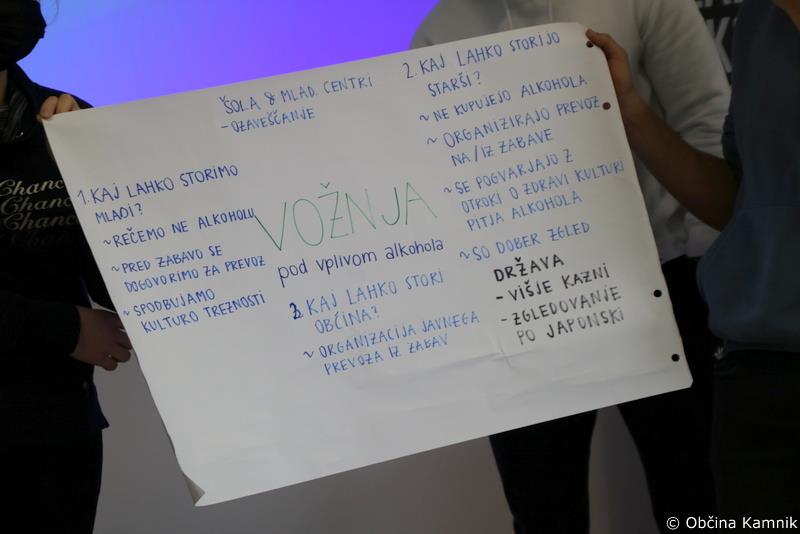 ŠOLA & MLAD. CENTRI
- OZAVEŠČANJE
1. KAJ LAHKO STORIMO
MLADI?
~ REČEMO NE ALKOHOLU
~ PRED ZABAVO SE
DOGOVORIMO ZA PREVOZ
~ SPODBUJAMO
KULTURO TREZNOSTI
VOŽNJA
pod vplivom alkohola
3. KAJ LAHKO STORI
OBČINA?
~ ORGANIZACIJA JAVNEGA
PREVOZA IZ ZABAV
2. KAJ LAHKO STORIJO
STARŠI?
~ NE KUPUJEJO ALKOHOLA
~ ORGANIZIRAJO PREVOZ
NA/IZ ZABAVE
~ SE POGVARJAJO Z
OTROKI O ZDRAVI KULTURI
PITJA ALKOHOLA
~ SO DOBER ZGLED
DRŽAVA
- VIŠJE KAZNI
- ZGLEDOVANJE
PO JAPONSKI
Chanc
Chanc
Chanc
Chanc
© Občina Kamnik